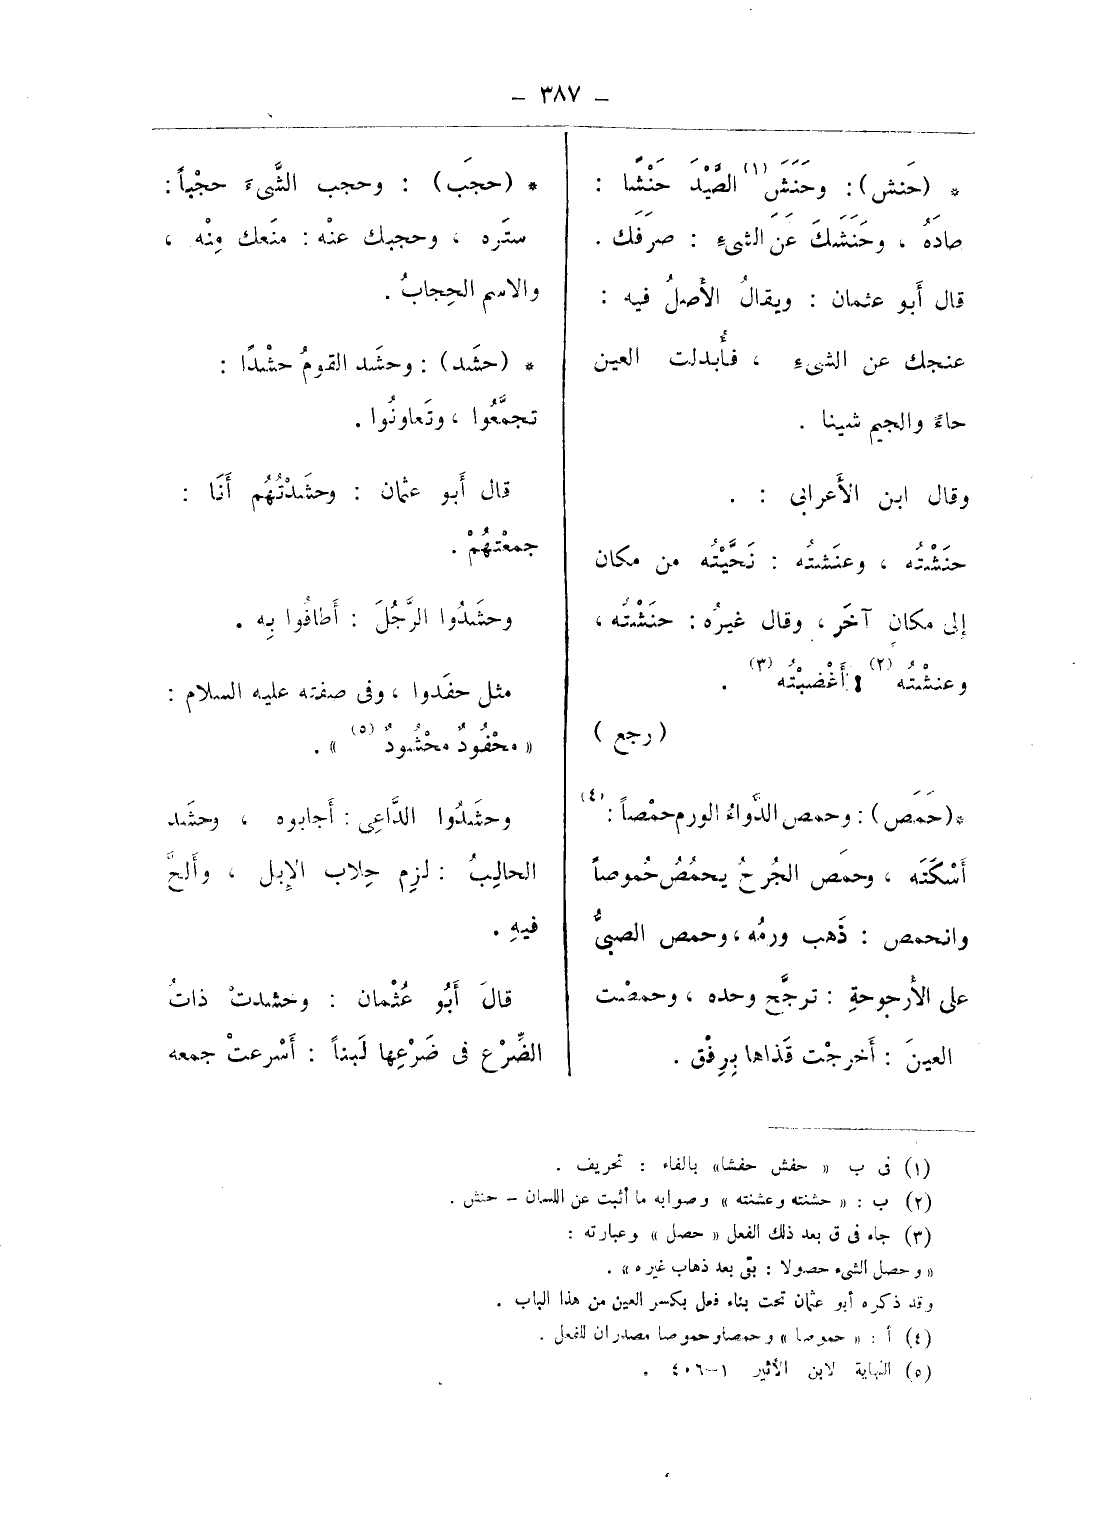 – ٣٨٧ –
* (حَنش) : وحَنَشَ(١) الصَّيْدَ حَنْشًا :
صادَهُ ، وحَنَشَكَ عَنَ الشىءِ : صرَفَك .
قال أَبو عثمان : ويقالُ الأَصلُ فيه :
عنجك عن الشىءِ ، فأُبدلت العين
حاءً والجيم شينا .
وقال ابن الأَعرابى : .
حنَشْتُه ، وعنَشتُه : نَحَّيْتُه من مكان
إلى مكانٍ آخَر ، وقال غيرُه : حنَشْتُه ،
وعنشْتُه (٢) : أَغْضبْتُه (٣) .
( رجع )
*(حَمَص) : وحمص الدَّواءُ الورم حمْصاً :(٤)
أَسْكَنَه ، وحمَص الجُرحُ يحمُصُ حُموصاً
وانحمص : ذَهب ورمُه ، وحمص الصبىُّ
على الأُرجوحةِ : ترجَّح وحده ، وحمصْت
العينَ : أَخرجْت قَذاها بِرِفْق .
* (حجَب) : وحجب الشَّىءَ حجْباً :
ستَره ، وحجبك عنْه : منَعك مِنْه ،
والاسم الحِجابُ .
* (حشَد) : وحشَد القومُ حشْدًا :
تجمَّعُوا ، وتَعاونُوا .
قال أَبو عثمان : وحشَدْتُهُم أَنَا :
جمعْتهُمْ .
وحشَدُوا الرَّجُلَ : أَطافُوا بِه .
مثل حفَدوا ، وفى صفته عليه السلام :
« محْفُودٌ محْشُودٌ (٥) » .
وحشَدُوا الدَّاعِى : أَجابوه ، وحشَد
الحالِبُ : لزِم حِلاب الإِبل ، وأَلحَّ
فيهِ .
قالَ أَبُو عُثْمان : وحشدتْ ذاتُ
الضِّرْعِ فى ضَرْعِها لَبناً : أَسْرعتْ جمعه
(١) فى ب « حفش حفشا» بالفاء : تحريف .
(٢) ب : « حشنته وعشنته » وصوابه ما أثبت عن اللسان – حنش .
(٣) جاء فى ق بعد ذلك الفعل « حصل » وعبارته :
« وحصل الشىء حصولا : بقى بعد ذهاب غيره » .
وقد ذكره أبو عثمان تحت بناء فعل بكسر العين من هذا الباب .
(٤) أ : « حموصا » وحمصا وحموصا مصدران للفعل .
(٥) النهاية لابن الأثير ١–٤٠٦ .